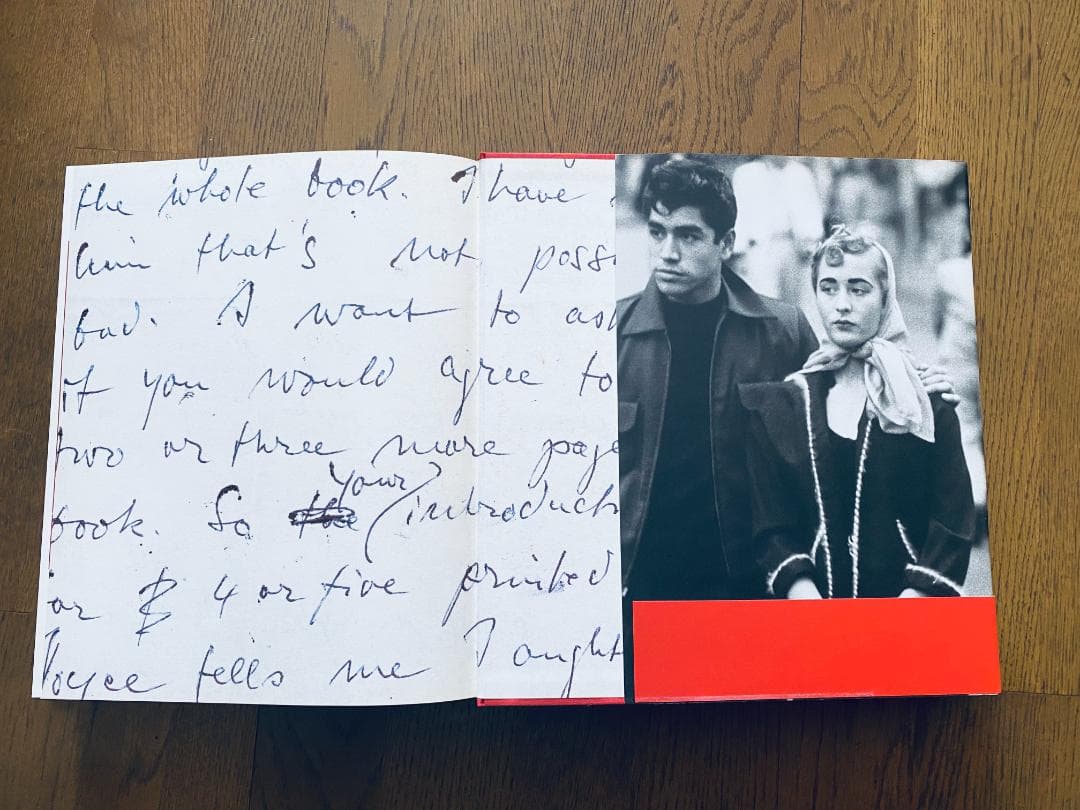 the whole book. I have
him that's not poss
bad. I want to ask
if you would agree to
two or three more page
book. So the your introducti
or 4 or five printed
Joyce tells me I ought